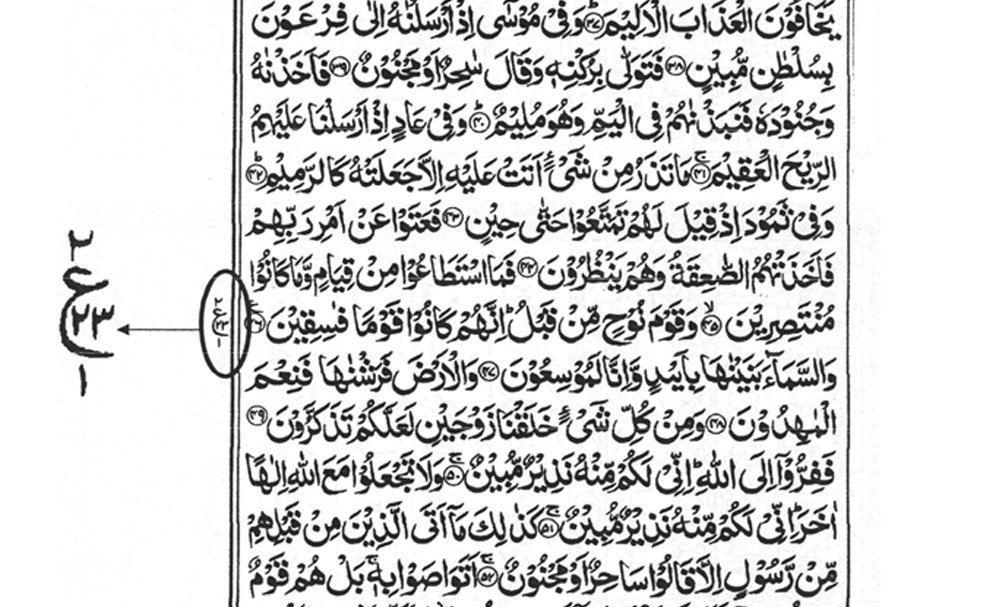 يَخَافُوْنَ الْعَذَابَ الْاَلِيْمَ ؕ۳۷ وَفِىْ مُوْسٰٓى اِذْ اَرْسَلْنٰهُ اِلٰى فِرْعَوْنَ
بِسُلْطٰنٍ مُّبِيْنٍ ۳۸ فَتَوَلّٰى بِرُكْنِهٖ وَقَالَ سٰحِرٌ اَوْ مَجْنُوْنٌ ۳۹ فَاَخَذْنٰهُ
وَجُنُوْدَهٗ فَنَبَذْنٰهُمْ فِى الْيَمِّ وَهُوَ مُلِيْمٌ ؕ۴۰ وَفِىْ عَادٍ اِذْ اَرْسَلْنَا عَلَيْهِمُ
الرِّيْحَ الْعَقِيْمَ ۚ۴۱ مَا تَذَرُ مِنْ شَىْءٍ اَتَتْ عَلَيْهِ اِلَّا جَعَلَتْهُ كَالرَّمِيْمِ ؕ۴۲
وَفِىْ ثَمُوْدَ اِذْ قِيْلَ لَهُمْ تَمَتَّعُوْا حَتّٰى حِيْنٍ ۴۳ فَعَتَوْا عَنْ اَمْرِ رَبِّهِمْ
فَاَخَذَتْهُمُ الصّٰعِقَةُ وَهُمْ يَنْظُرُوْنَ ۴۴ فَمَا اسْتَطَاعُوْا مِنْ قِيَامٍ وَّمَا كَانُوْا
مُنْتَصِرِيْنَ ۙ۴۵ وَقَوْمَ نُوْحٍ مِّنْ قَبْلُ ؕ اِنَّهُمْ كَانُوْا قَوْمًا فٰسِقِيْنَ ۴۶
وَالسَّمَآءَ بَنَيْنٰهَا بِاَيْىدٍ وَّاِنَّا لَمُوْسِعُوْنَ ۴۷ وَالْاَرْضَ فَرَشْنٰهَا فَنِعْمَ
الْمٰهِدُوْنَ ۴۸ وَمِنْ كُلِّ شَىْءٍ خَلَقْنَا زَوْجَيْنِ لَعَلَّكُمْ تَذَكَّرُوْنَ ۴۹
فَفِرُّوْۤا اِلَى اللّٰهِ ؕ اِنِّىْ لَكُمْ مِّنْهُ نَذِيْرٌ مُّبِيْنٌ ۚ۵۰ وَلَا تَجْعَلُوْا مَعَ اللّٰهِ اِلٰهًا
اٰخَرَ ؕ اِنِّىْ لَكُمْ مِّنْهُ نَذِيْرٌ مُّبِيْنٌ ۚ۵۱ كَذٰلِكَ مَاۤ اَتَى الَّذِيْنَ مِنْ قَبْلِهِمْ
مِّنْ رَّسُوْلٍ اِلَّا قَالُوْا سَاحِرٌ اَوْ مَجْنُوْنٌ ۚ۵۲ اَتَوَاصَوْا بِهٖ ۚ بَلْ هُمْ قَوْمٌ
٢
ع
٢٣
١